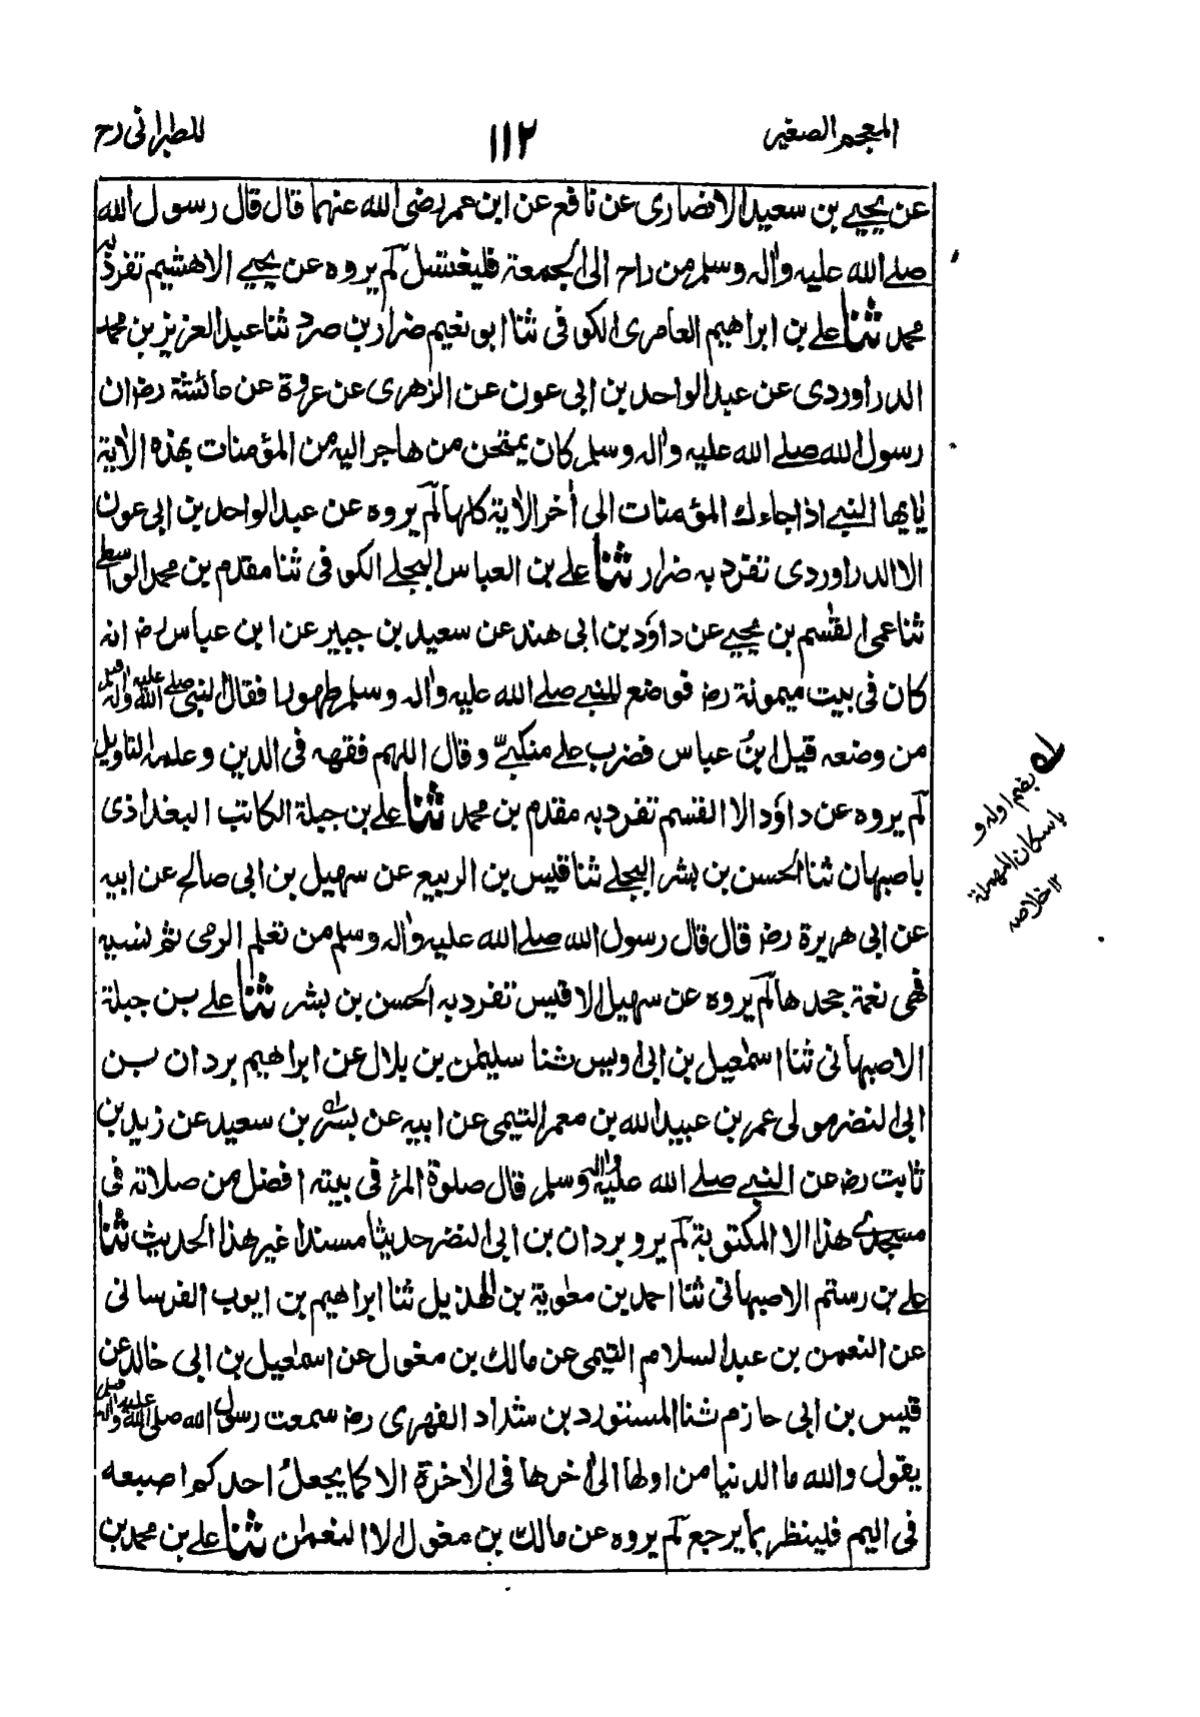 المعجم الصغير
١١٢
للطبرانی رح
عن يحيے بن سعيد الانصاری عن نافع عن ابن عمر رضی الله عنهما قال قال رسول الله
صلے الله عليه واٰله وسلم من راح الی الجمعة فليغتسل لم يروه عن يحيے الا هشيم تفرد به
محمد ثنا علے بن ابراهيم العامری الكوفی ثنا ابو نعيم ضرار بن صرد ثنا عبد العزيز بن محمد
الدراوردی عن عبد الواحد بن ابی عون عن الزهری عن عروة عن عائشة رضؔ ان
رسول الله صلے الله عليه واٰله وسلم كان يمتحن من هاجر اليه من المؤمنات بهذه الاٰية
يٰايها النبے اذا جاءك المؤمنات الی اٰخر الاٰية كلها لم يروه عن عبد الواحد بن ابی عون
الا الدراوردی تفرد به ضرار ثنا علے بن العباس البجلے الكوفی ثنا مقدم بن محمد الواسطے
ثنا عمی القٰسم بن يحيے عن داؤد بن ابی هند عن سعيد بن جبير عن ابن عباس رضؔ انه
كان فی بيت ميمونة رضؔ فوضع للنبے صلے الله عليه واٰله وسلم طهورا فقال النبی صلے الله عليه واٰله وسلم
من وضعه قيل ابنُ عباس فضرب علے منكبے وقال اللهم فقهه فی الدين وعلمه التاويل
لم يروه عن داؤد الا القسم تفرد به مقدم بن محمد ثنا علے بن جبلة الكاتب البغدادی
باصبهان ثنا الحسن بن بشر البجلے ثنا قيس بن الربيع عن سهيل بن ابی صالح عن ابيه
عن ابی هريرة رضؔ قال قال رسول الله صلے الله عليه واٰله وسلم من تعلم الرمی ثم نسيه
فهی نعمة جحدها لم يروه عن سهيل الا قيس تفرد به الحسن بن بشر ثنا علے بن جبلة
الاصبهانی ثنا اسمٰعيل بن ابی اويس ثنا سليمٰن بن بلال عن ابراهيم بردان بن
ابی النضر مولی عمر بن عبيد الله بن معمر التيمی عن ابيه عن بسرؔ بن سعيد عن زيد بن
ثابت رضؔ عن النبے صلے الله عليه واٰله وسلم قال صلوة المرؤ فی بيته افضل من صلاته فی
مسجدے هذا الا المكتوبة لم يرو بردان بن ابی النضر حديثا مسندا غير هذا الحديث ثنا
علے بن رستم الاصبهانی ثنا احمد بن معٰوية بن الهذيل ثنا ابراهيم بن ايوب الفرسانی
عن النعمٰن بن عبد السلام التيمی عن مالك بن مغول عن اسمٰعيل بن ابی خالد عن
قيس بن ابی حازم ثنا المستورد بن شداد الفهری رضؔ سمعت رسول الله صلے الله عليه واٰله وسلم
يقول والله ما الدنيا من اولها الی اٰخرها فی الاٰخرة الا كما يجعل احدكم اصبعه
فی اليم فلينظر بما يرجع لم يروه عن مالك بن مغول الا النعمان ثنا علے بن محمد بن
لے بضم اوله و
باسكان المهملة
١٢ خلاصه